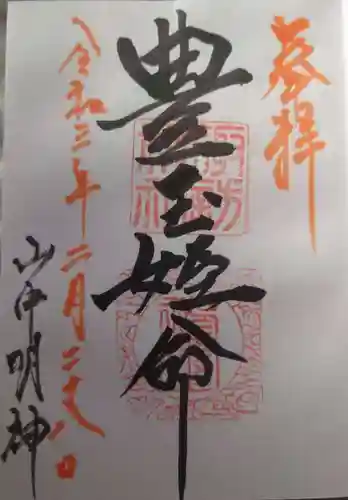 奉拝
豊玉姫命
令和三年二月二十八日
山中明神